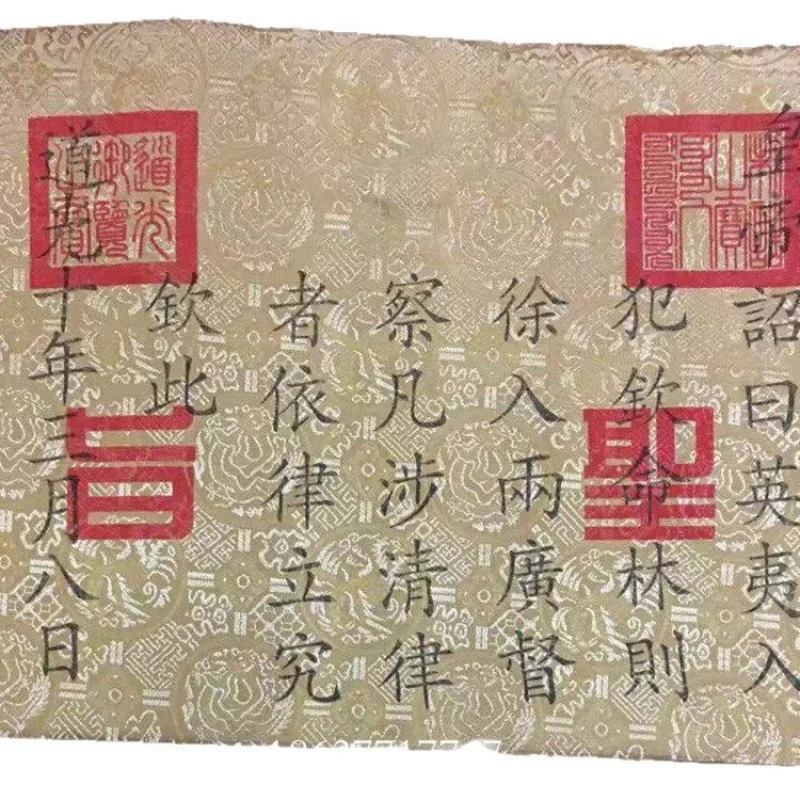 皇帝詔曰英夷入
犯欽命林則
徐入兩廣督
察凡涉清律
者依律立究
欽此
道光十年三月八日
聖
旨